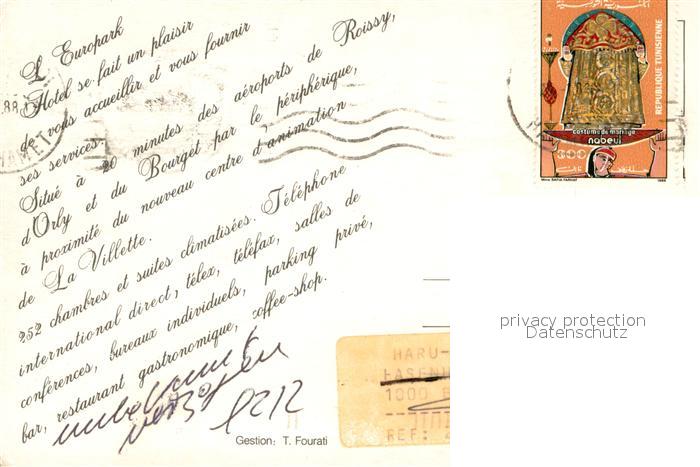 L'Europark
Hotel se fait un plaisir
de vous accueillir et vous fournir
ses services.
Situé à 20 minutes des aéroports de Roissy,
d'Orly et du Bourget par le périphérique,
à proximité du nouveau centre d'animation
de La Villette.
252 chambres et suites climatisées. Téléphone
international direct, télex, téléfax, salles de
conférences, bureaux individuels, parking privé,
bar, restaurant gastronomique, coffee-shop.
Gestion: T. Fourati
unbekannt
verzogen
HARU-
HASENH
1000
REF:
REPUBLIQUE TUNISIENNE
costume de mariage
nabeul
300
1988
88
privacy protection
Datenschutz